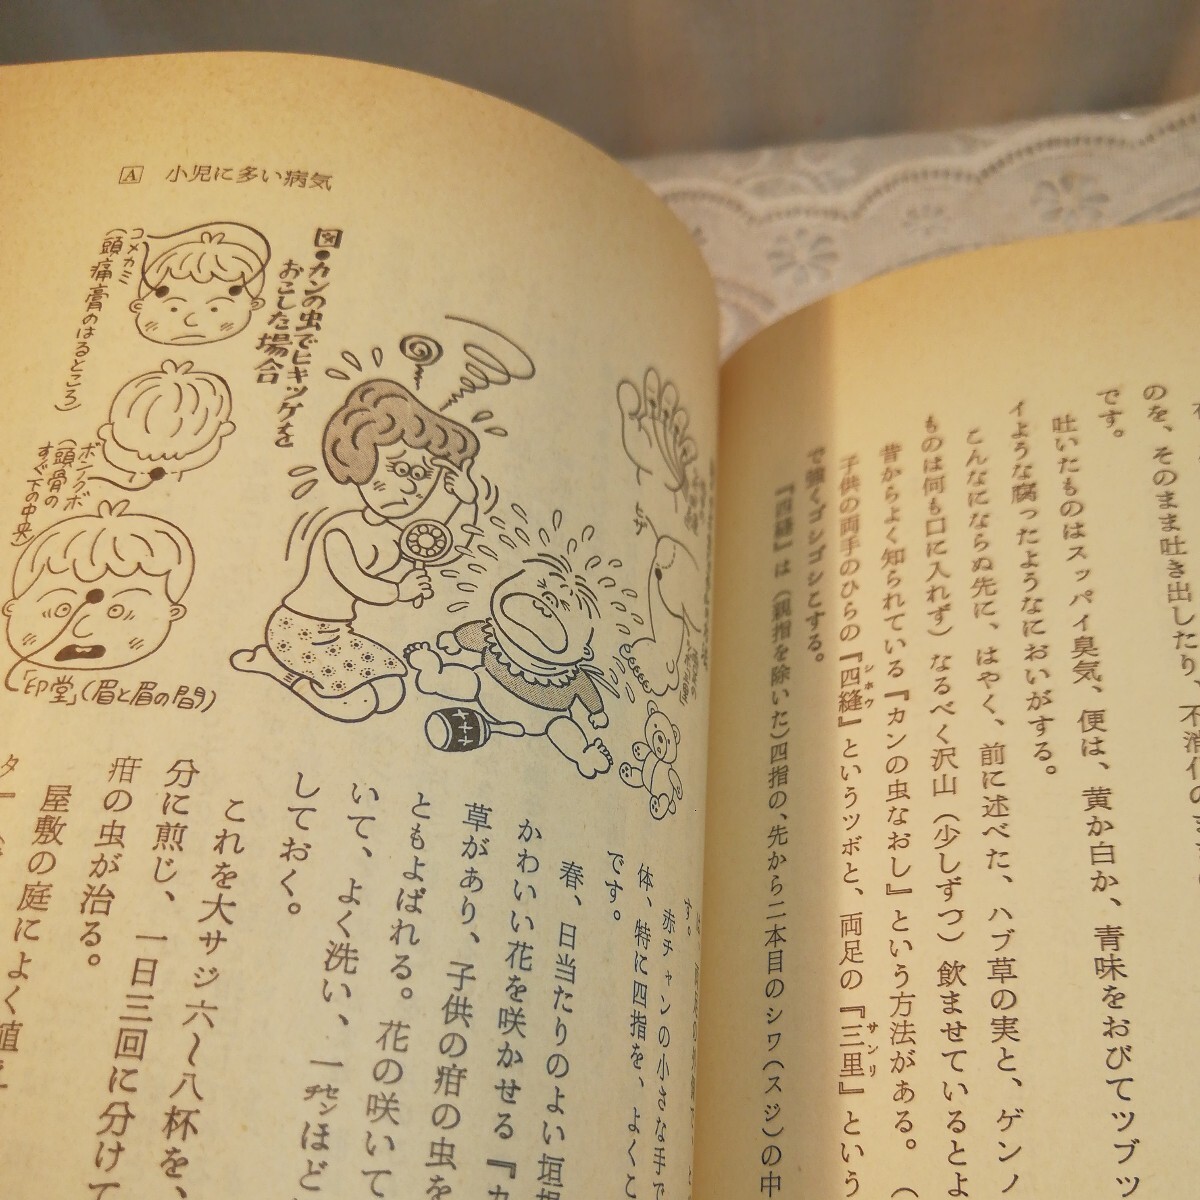 のを、そのまま吐き出したり、不消化の
です。
吐いたものはスッパイ臭気、便は、黄か白か、青味をおびてツブッ
イような腐ったようなにおいがする。
こんなにならぬ先に、はやく、前に述べた、ハブ草の実と、ゲンノ
ものは何も口に入れず）なるべく沢山（少しずつ）飲ませているとよ
昔からよく知られている『カンの虫なおし』という方法がある。（
子供の両手のひらの『四縫』というツボと、両足の『三里』という
シホウ
サンリ
で強くゴシゴシとする。
『四縫』は（親指を除いた）四指の、先から二本目のシワ（スジ）の中
A 小児に多い病気
図●カンの虫でヒキツケを
おこした場合
コメカミ
（頭痛膏のはるところ）
ボンノクボ
（頭骨の
すぐ下の中央）
「印堂」（眉と眉の間）
ヒザ
す。
赤チャンの小さな手で
体、特に四指を、よくこ
です。
春、日当たりのよい垣根
かわいい花を咲かせる『カ
草があり、子供の疳の虫を
ともよばれる。花の咲いて
いて、よく洗い、一センチほど
しておく。
これを大サジ六〜八杯を、
分に煎じ、一日三回に分けて
疳の虫が治る。
屋敷の庭によく植え